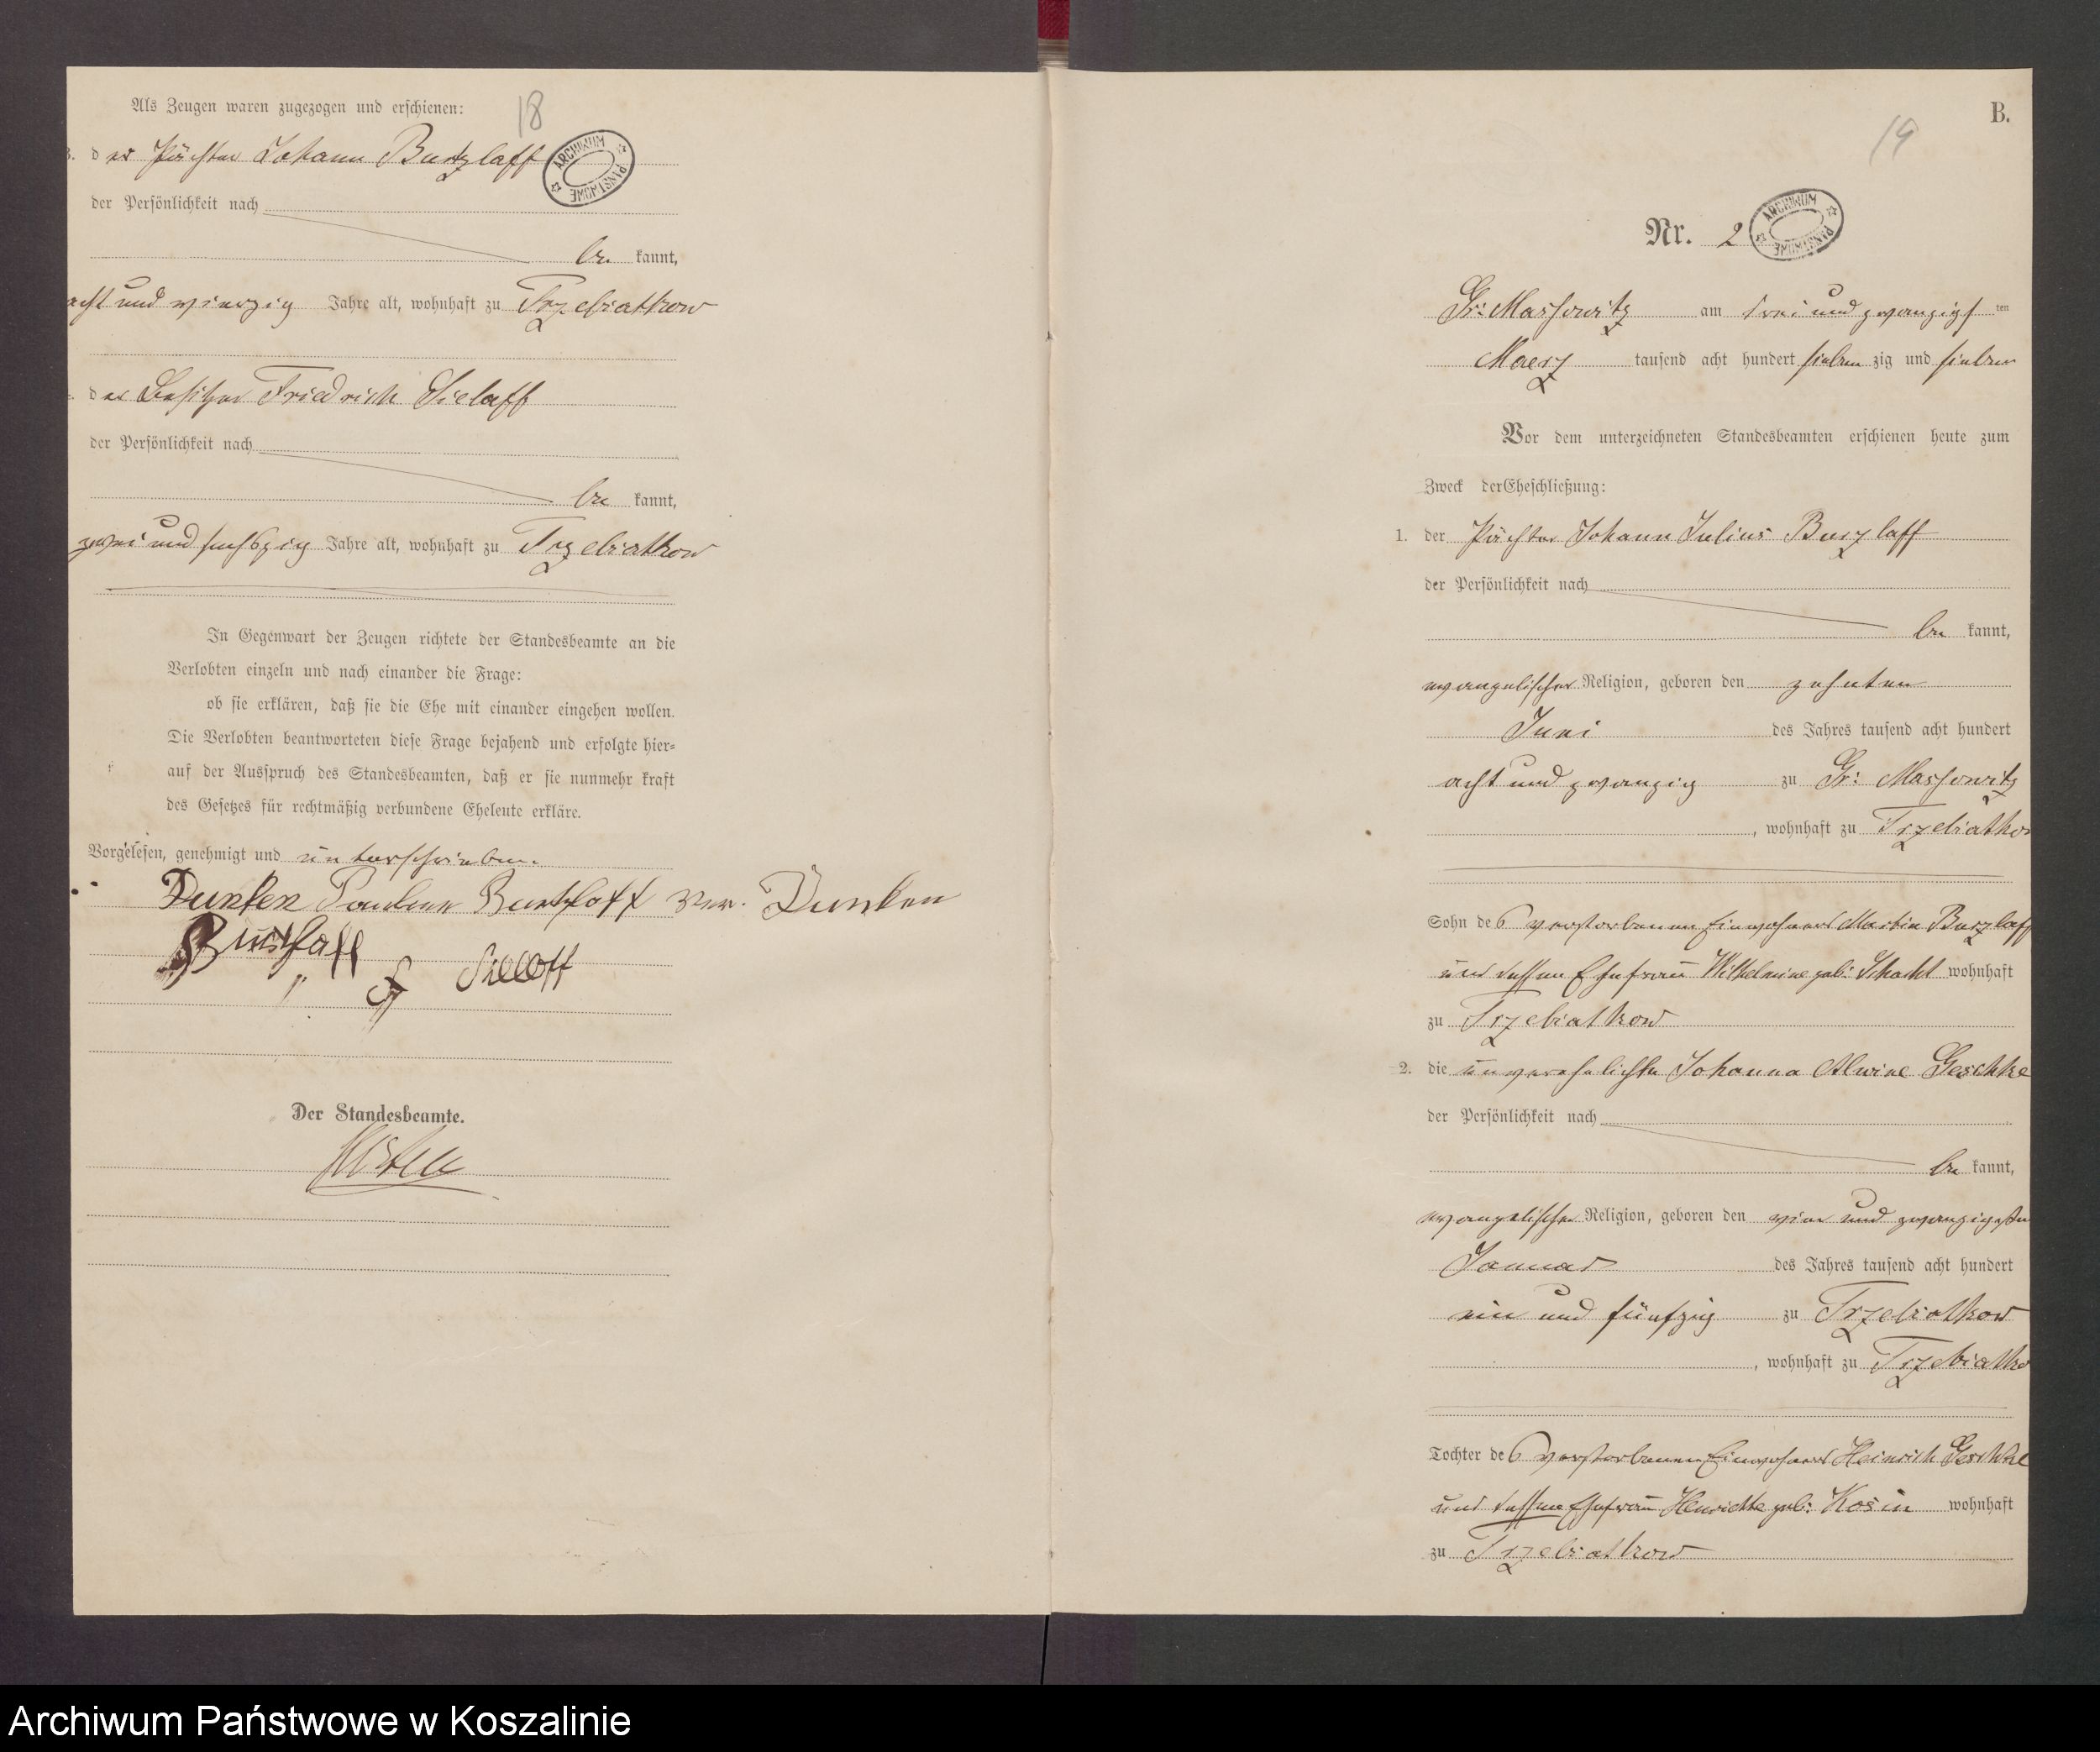 Als Zeugen waren zugezogen und erschienen:
18
3. der Pächter Johann Butzlaff
ARCHIWUM PAŃSTWOWE
der Persönlichkeit nach
be kannt,
acht und vierzig Jahre alt, wohnhaft zu Trzebiatkow
der Besitzer Friedrich Sielaff
der Persönlichkeit nach
be kannt,
zwei und sechszig Jahre alt, wohnhaft zu Trzebiatkow
In Gegenwart der Zeugen richtete der Standesbeamte an die
Verlobten einzeln und nach einander die Frage:
ob sie erklären, daß sie die Ehe mit einander eingehen wollen.
Die Verlobten beantworteten diese Frage bejahend und erfolgte hier-
auf der Ausspruch des Standesbeamten, daß er sie nunmehr kraft
des Gesetzes für rechtmäßig verbundene Eheleute erkläre.
Vorgelesen, genehmigt und unterschrieben.
Dunken
Der Standesbeamte.
B.
19
Nr. 2
ARCHIWUM PAŃSTWOWE
Gr: Massowitz am drei und zwanzigsten
Maerz tausend acht hundert sieben zig und sieben
Vor dem unterzeichneten Standesbeamten erschienen heute zum
Zweck der Eheschließung:
1. der Pächter Johann Julius Burzlaff
der Persönlichkeit nach
be kannt,
evangelischer Religion, geboren den zehnten
Juni des Jahres tausend acht hundert
acht und zwanzig zu Gr: Massowitz
, wohnhaft zu Trzebiatkow
Sohn des verstorbenen Einwohners Martin Burzlaff
und dessen Ehefrau Wilhelmine geb: Schacht wohnhaft
zu Trzebiatkow
2. die unverehelichte Johanna Alwine Geschke
der Persönlichkeit nach
be kannt,
evangelischer Religion, geboren den vier und zwanzigsten
Januar des Jahres tausend acht hundert
ein und fünfzig zu Trzebiatkow
, wohnhaft zu Trzebiatko
Tochter des verstorbenen Einwohners Heinrich Geschke
und dessen Ehefrau Henriette geb: Kosin wohnhaft
zu Trzebiatkow
Archiwum Państwowe w Koszalinie